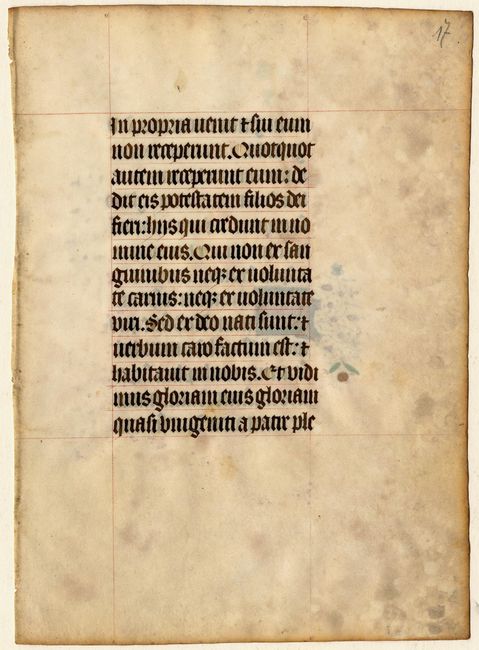 17
In propria venit ⁊ sui eum
non receperunt. Quotquot
autem receperunt eum: de
dit eis potestatem filios dei
fieri: hijs qui credunt in no
mine eius. Qui non ex san
guinibus neqꝫ ex uolunta
te carnis: neqꝫ ex uoluntate
viri. Sed ex deo nati sunt: ⁊
uerbum caro factum est: ⁊
habitauit in nobis. Et vidi
mus gloriam eius gloriam
quasi vnigeniti a patre ple